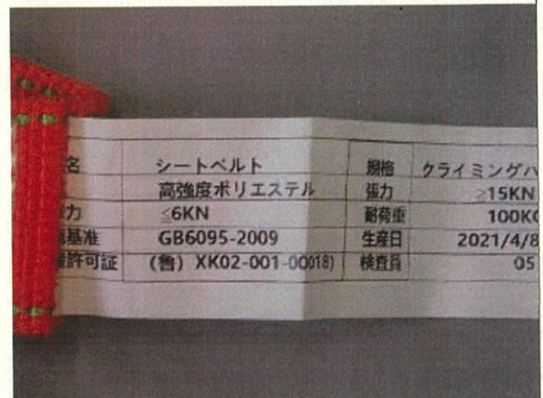 名 シートベルト 規格 クライミングハ
高強度ポリエステル 張力 ≥15KN
力 ≤6KN 耐荷重 100K
基准 GB6095-2009 生産日 2021/4/8
許可証 (魯) XK02-001-00018) 検査員 05